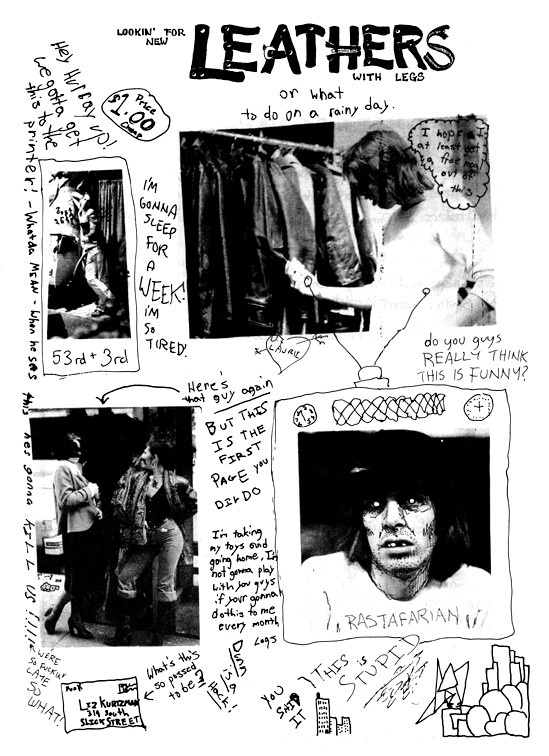 LOOKIN' FOR
NEW
LEATHERS
WITH LEGS
or what
to do on a rainy day.
Hey Hurray up!
we gotta get
this to the
printer! - Whatda MEAN - When he sees
this hes gonna KILL US!!!!
WE'RE
SO FUCKIN'
LATE
SO
WHAT!
Price
$1.00
Cheap
I hope I
at least get
a free meal
out of
this
I'M
GONNA
SLEEP
FOR
A
WEEK!
I'M
SO
TIRED!
53rd + 3rd
LAURIE
do you guys
REALLY THINK
THIS IS FUNNY?
Here's
that guy again
BUT THIS
IS THE
FIRST
PAGE you
DILDO
I'm taking
my toys and
going home, I'm
not gonna play
with you guys
if your gonna
do this to me
every month
Legs
Dunn
is a
Hack!
"RASTAFARIAN"
What's this
so possed
to be?
PUNK
LIZ KURTZMAN
319 South
SLICK STREET
YOU
SHIP
IT
THIS is
STUPID